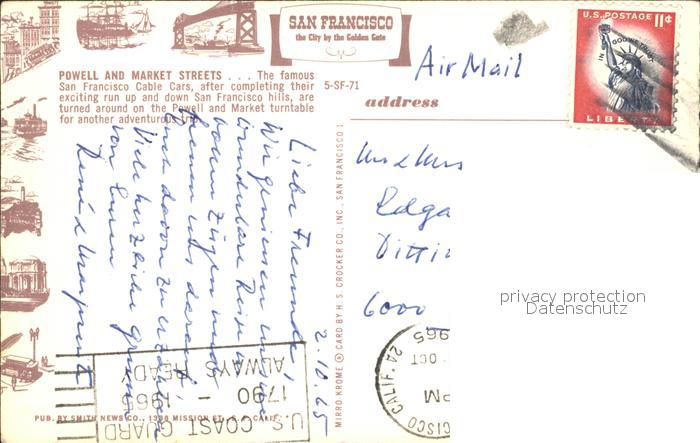 SAN FRANCISCO
the City by the Golden Gate
U.S. POSTAGE 11¢
IN GOD WE TRUST
LIBERTY
Air Mail
POWELL AND MARKET STREETS . . . The famous
San Francisco Cable Cars, after completing their
exciting run up and down San Francisco hills, are
turned around on the Powell and Market turntable
for another adventurous trip.
5-SF-71
address
2.10.65
Liebe Freunde!
Wir geniessen unsere
wunderbare Reise in
vollen Zügen und
freuen uns darauf
Euch davon zu erzählen
Viele herzliche Grüsse
von Euren
René &
Mrs
Edga
Ditti
6000
privacy protection
Datenschutz
MIRRO-KROME ® CARD BY H. S. CROCKER CO., INC., SAN FRANCISCO 1
U.S. COAST GUARD
1790 - 1965
ALWAYS READY
CISCO CALIF.
OCT
PM
1965
PUB. BY SMITH NEWS CO., MISSION ST., S. F., CALIF.